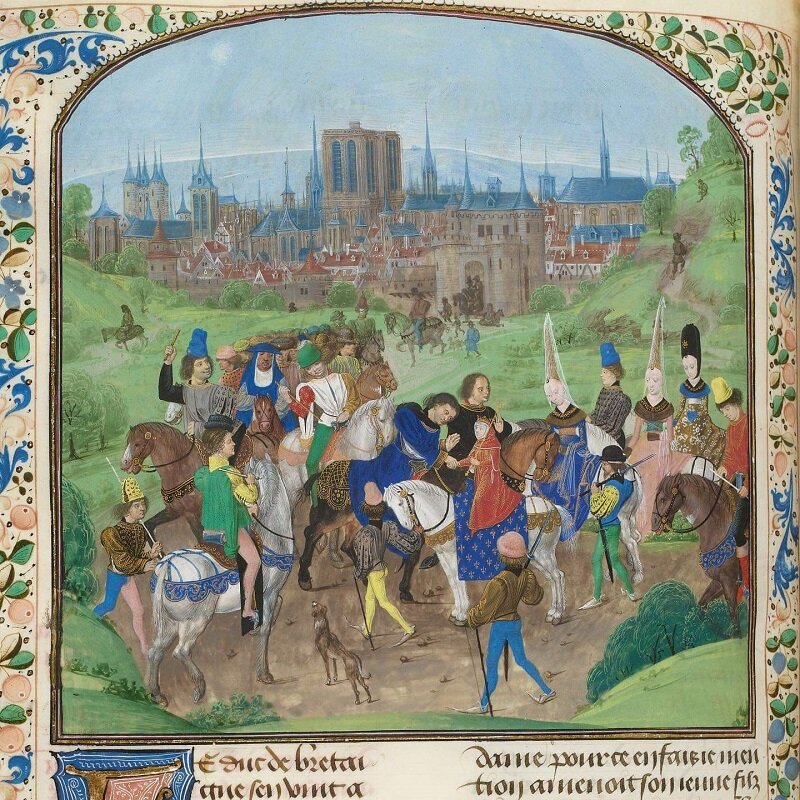 Le duc de bretai
gne sen vint a
dame pource en fais ie men
tion amenoit son ieune filz